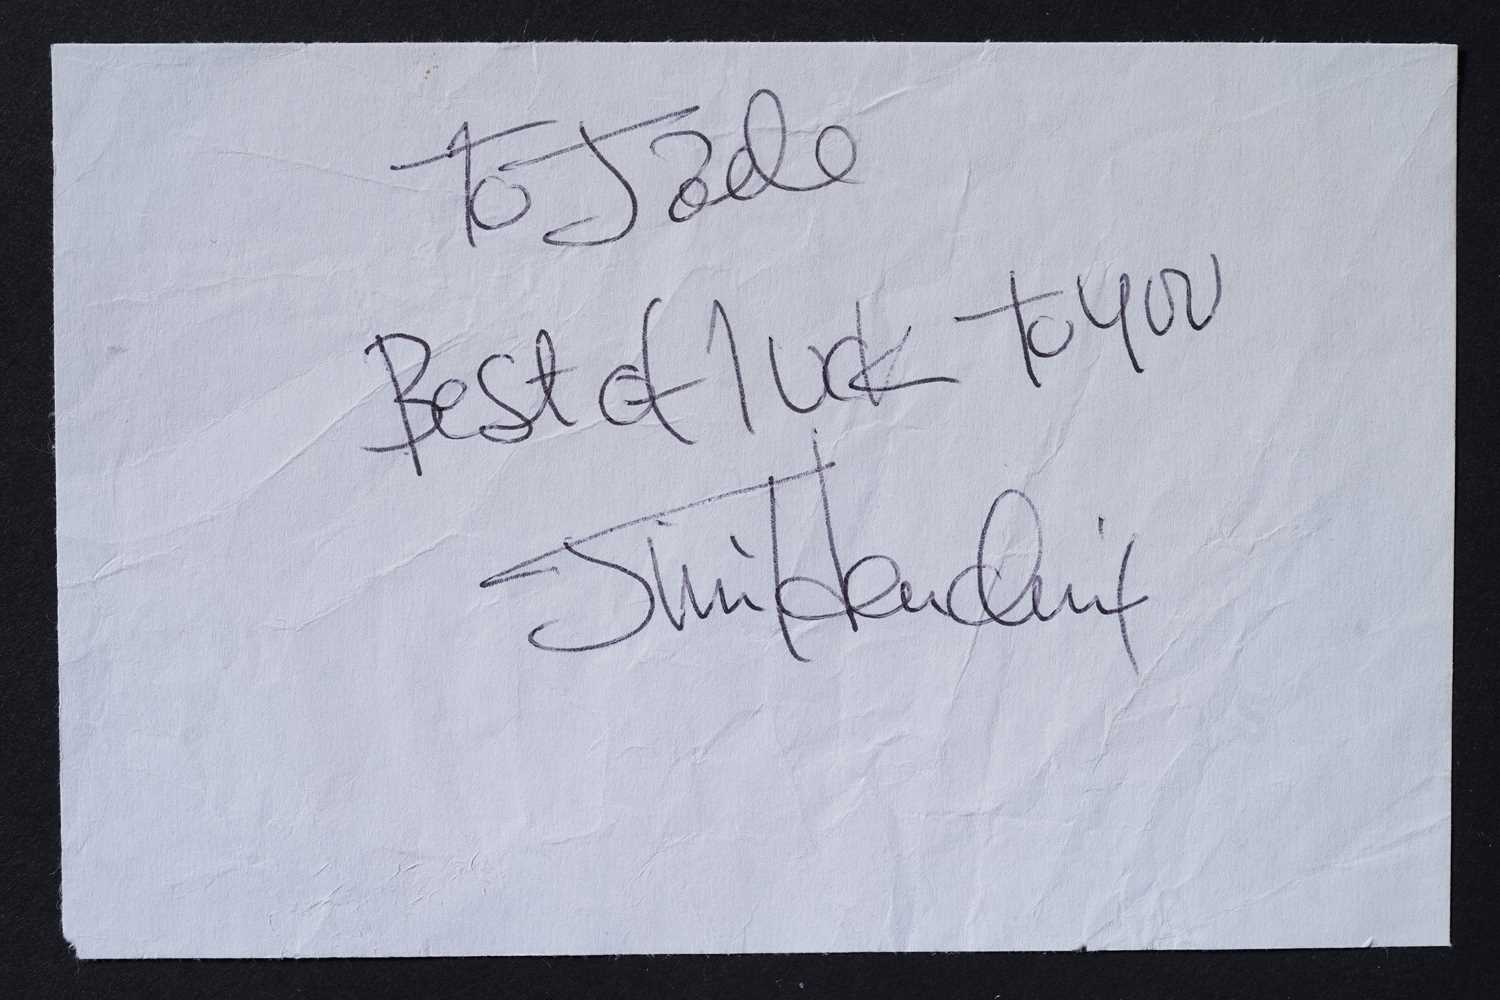 To Jade
Best of luck to you
Jimi Hendrix